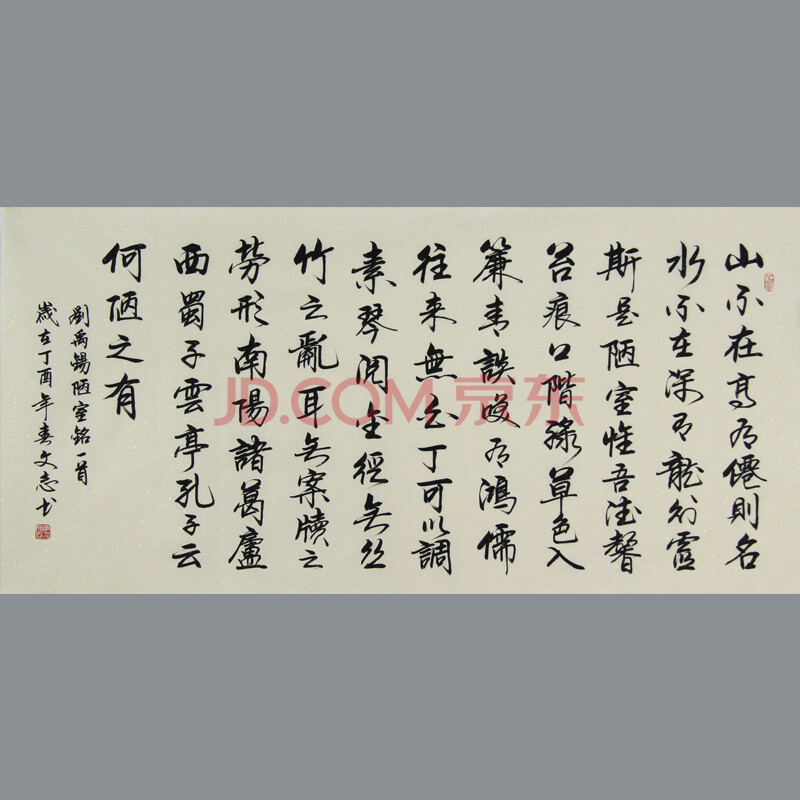 山不在高有僊則名
水不在深有龍則靈
斯是陋室惟吾德馨
苔痕上階綠草色入
簾青談笑有鴻儒
往來無白丁可以調
素琴閱金經無絲
竹之亂耳無案牘之
勞形南陽諸葛廬
西蜀子雲亭孔子云
何陋之有
劉禹錫陋室銘一首
歲在丁酉年春文志书
JD.COM 京东